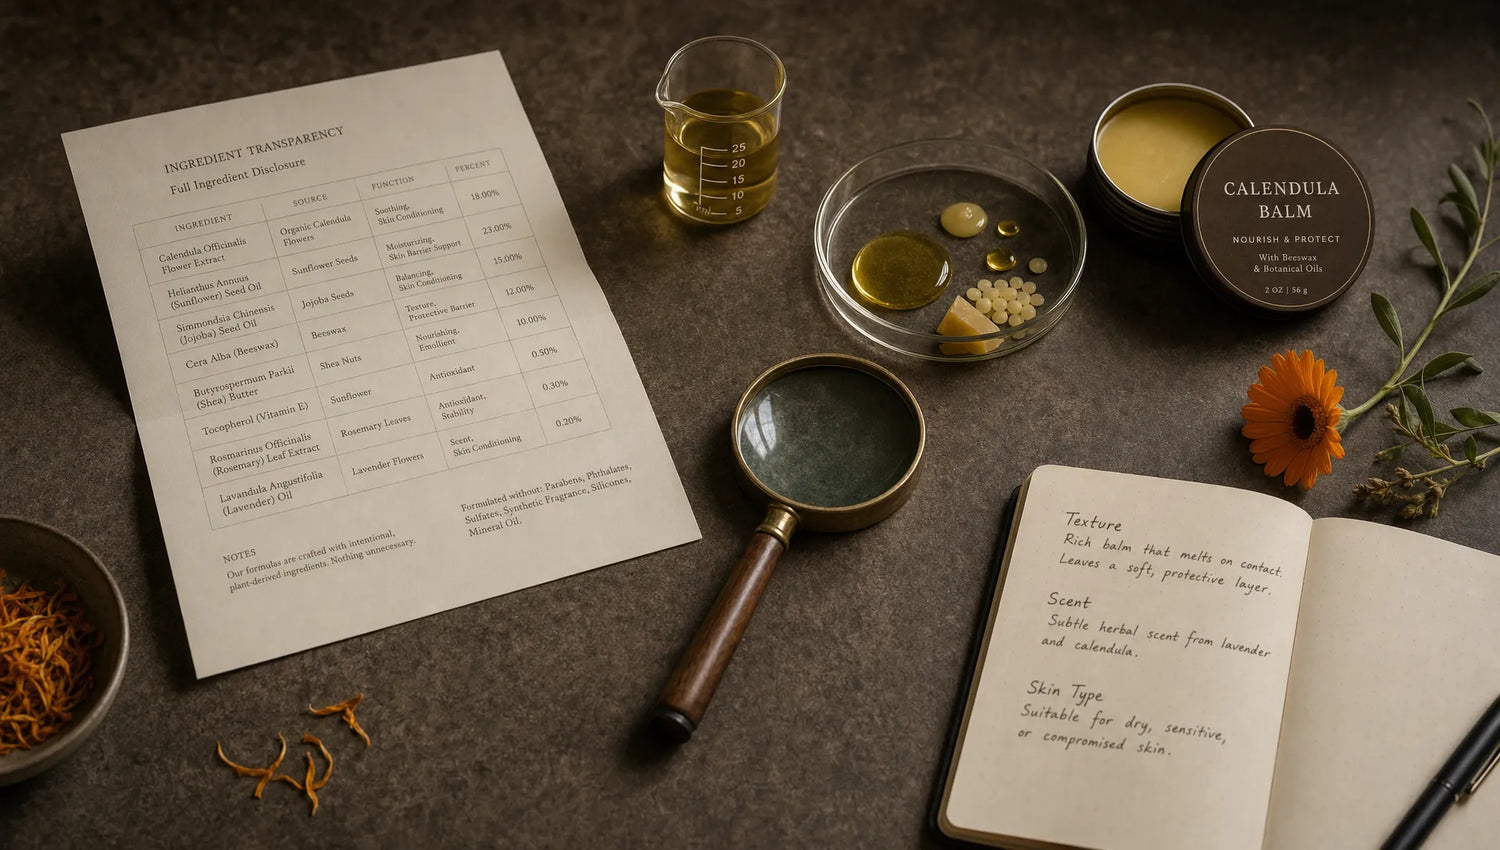 INGREDIENT TRANSPARENCY
Full Ingredient Disclosure
INGREDIENT SOURCE FUNCTION PERCENT
Calendula Officinalis
Flower Extract
Organic Calendula
Flowers
Soothing,
Skin Conditioning
18.00%
Helianthus Annuus
(Sunflower) Seed Oil
Sunflower Seeds
Moisturizing,
Skin Barrier Support
23.00%
Simmondsia Chinensis
(Jojoba) Seed Oil
Jojoba Seeds
Balancing,
Skin Conditioning
15.00%
Cera Alba (Beeswax)
Beeswax
Texture,
Protective Barrier
12.00%
Butyrospermum Parkii
(Shea) Butter
Shea Nuts
Nourishing,
Emollient
10.00%
Tocopherol (Vitamin E)
Sunflower
Antioxidant
0.50%
Rosmarinus Officinalis
(Rosemary) Leaf Extract
Rosemary Leaves
Antioxidant,
Stability
0.30%
Lavandula Angustifolia
(Lavender) Oil
Lavender Flowers
Scent,
Skin Conditioning
0.20%
NOTES
Our formulas are crafted with intentional,
plant-derived ingredients. Nothing unnecessary.
Formulated without: Parabens, Phthalates,
Sulfates, Synthetic Fragrance, Silicones,
Mineral Oil.
25
20
15
10
5
CALENDULA
BALM
NOURISH & PROTECT
With Beeswax
& Botanical Oils
2 OZ | 56 g
Texture
Rich balm that melts on contact.
Leaves a soft, protective layer.
Scent
Subtle herbal scent from lavender
and calendula.
Skin Type
Suitable for dry, sensitive,
or compromised skin.